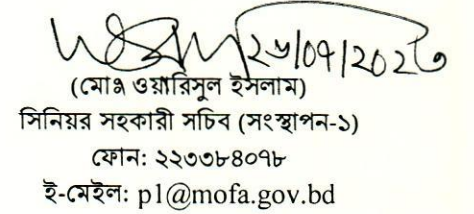 ২৬/০৭/২০২৩
(মোঃ ওয়ারিসুল ইসলাম)
সিনিয়র সহকারী সচিব (সংস্থাপন-১)
ফোন: ২২৩৩৮৪০৭৮
ই-মেইল: p1@mofa.gov.bd